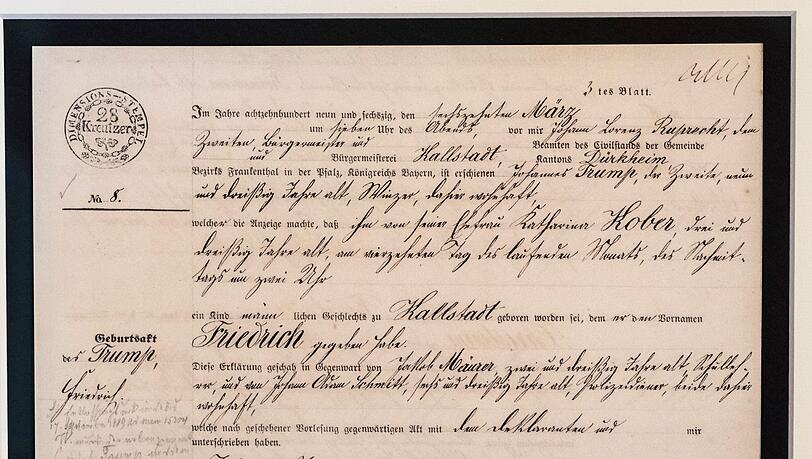 3 tes Blatt.
DIMENSIONS-STEMPEL
28
Kreutzer
Im Jahre achtzehnhundert neun und sechszig, den sechszehnten März
um sieben Uhr des Abends vor mir Johann Lorenz Ruprecht, dem
Zweiten, Bürgermeister und Beamten des Civilstands der Gemeinde
und Bürgermeisterei Kallstadt, Kantons Dürkheim
Bezirks Frankenthal in der Pfalz, Königreichs Bayern, ist erschienen Johannes Trump, der Zweite, neun
No. 8.
und dreißig Jahre alt, Winzer, dahier wohnhaft
welcher die Anzeige machte, daß ihm von seiner Ehefrau Katharina Kober, drei und
dreißig Jahre alt, am vierzehnten Tag des laufenden Monats, des Nachmit-
tags um zwei Uhr
ein Kind männ lichen Geschlechts zu Kallstadt geboren worden sei, dem er den Vornamen
Friedrich gegeben habe.
Geburtsakt
des Trump,
Friedrich.
Diese Erklärung geschah in Gegenwart von Jakob Mäurer, zwei und dreißig Jahre alt, Schulleh-
rer, und von Johann Adam Schmitt, sechs und dreißig Jahre alt, Polizeidiener, beide dahier
wohnhaft,
welche nach geschehener Vorlesung gegenwärtigen Akt mit dem Deklaranten und mir
unterschrieben haben.